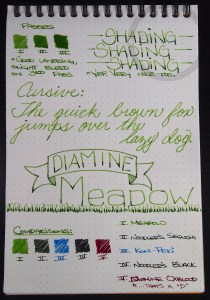 PASSES
I II III
* GOOD LAYERING,
SLIGHT BLEED
ON 3RD PASS
SHADING
SHADING
SHADING
Cursive:
The quick brown fox
jumps over the
lazy dog.
DIAMINE
Meadow
COMPARISONS:
I II III IV V
I MEADOW
II NOODLER'S SEQUOIA
III KON-PEKI
IV NOODLER'S BLACK
V DIAMINE OXBLOOD
^... THAT'S A "D"